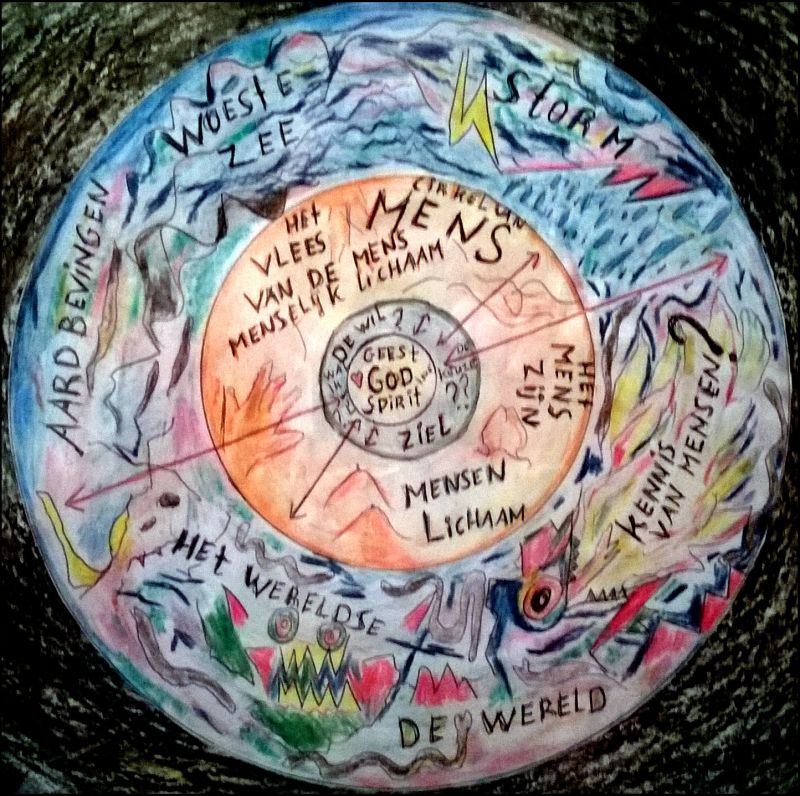 WOESTE
ZEE
STORM
AARDBEVINGEN
CIRKEL VAN
MENS
HET
VLEES
VAN DE MENS
MENSELIJK LICHAAM
DE WIL?
GEEST
GOD
SPIRIT
??
ZIEL
HET
MENS
ZIJN
MENSEN
LICHAAM
KENNIS
VAN MENSEN?
?
HET WERELDSE
DE WERELD